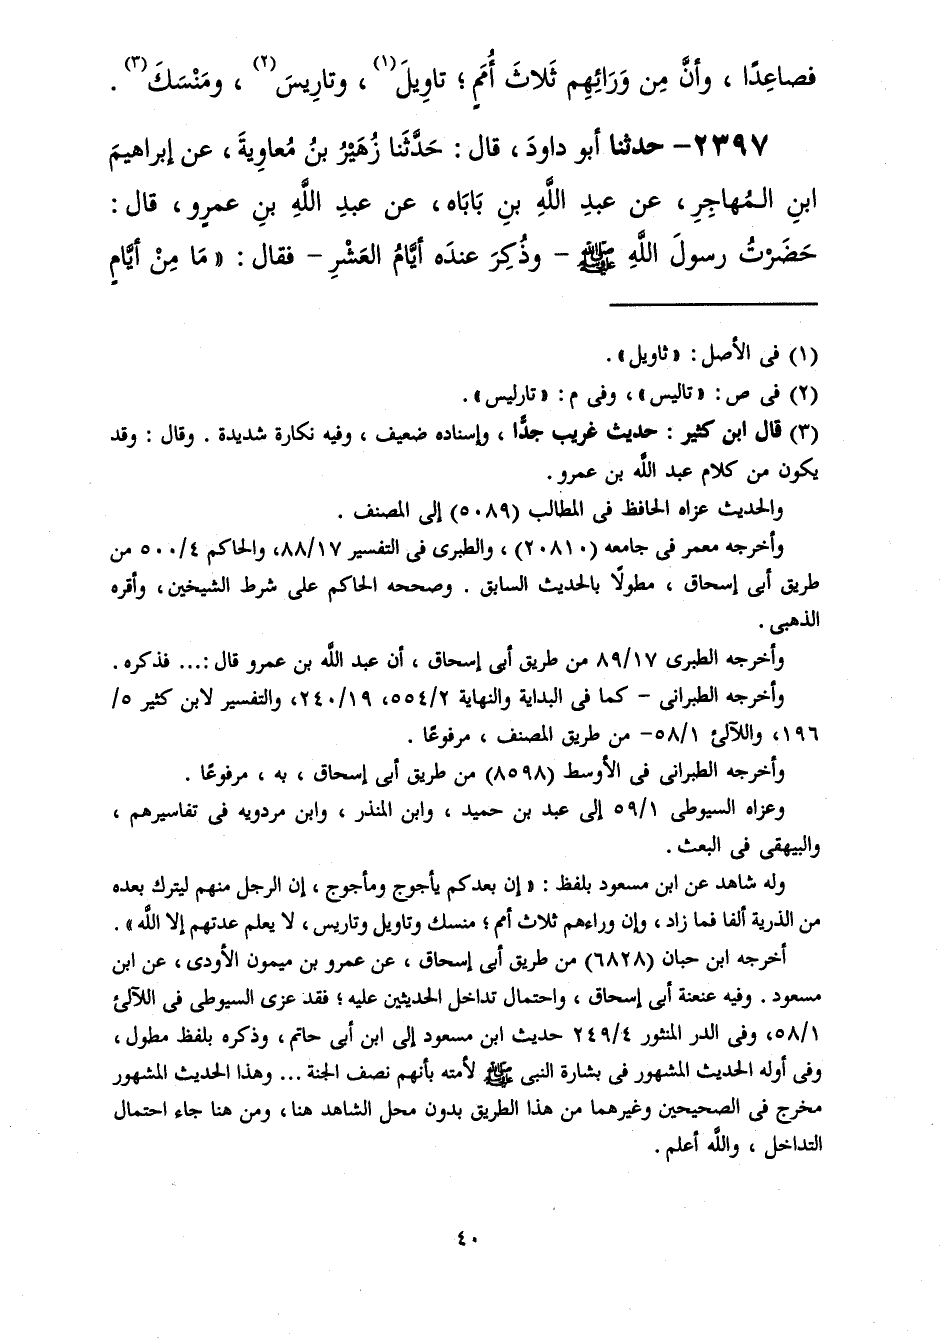 فصاعِدًا ، وأنَّ مِن وَرَائِهِم ثَلاثَ أُمَمٍ ؛ تاوِيلَ(١) ، وتارِيسَ(٢) ، ومَنْسَكَ(٣) .
٢٣٩٧- حدثنا أبو داودَ ، قال : حَدَّثَنا زُهَيْرُ بنُ مُعاوِيةَ ، عن إبراهيمَ
ابنِ المُهاجِرِ ، عن عبدِ اللَّهِ بنِ بَابَاه ، عن عبدِ اللَّهِ بنِ عمرٍو ، قال :
حَضَرْتُ رسولَ اللَّهِ ﷺ - وذُكِرَ عندَه أيَّامُ العَشْرِ - فقال : « مَا مِنْ أيَّامٍ
(١) فى الأصل : « ثاويل » .
(٢) فى ص : « تاليس » ، وفى م : « تارليس » .
(٣) قال ابن كثير : حديث غريب جدًّا ، وإسناده ضعيف ، وفيه نكارة شديدة . وقال : وقد
يكون من كلام عبد اللَّه بن عمرو .
والحديث عزاه الحافظ فى المطالب (٥٠٨٩) إلى المصنف .
وأخرجه معمر فى جامعه (٢٠٨١٠) ، والطبرى فى التفسير ٨٨/١٧، والحاكم ٥٠٠/٤ من
طريق أبى إسحاق ، مطولًا بالحديث السابق . وصححه الحاكم على شرط الشيخين ، وأقره
الذهبى .
وأخرجه الطبرى ٨٩/١٧ من طريق أبى إسحاق ، أن عبد اللَّه بن عمرو قال :... فذكره .
وأخرجه الطبرانى - كما فى البداية والنهاية ٥٥٤/٢، ٢٤٠/١٩، والتفسير لابن كثير ٥/
١٩٦، واللآلئ ٥٨/١- من طريق المصنف ، مرفوعًا .
وأخرجه الطبرانى فى الأوسط (٨٥٩٨) من طريق أبى إسحاق ، به ، مرفوعًا .
وعزاه السيوطى ٥٩/١ إلى عبد بن حميد ، وابن المنذر ، وابن مردويه فى تفاسيرهم ،
والبيهقى فى البعث .
وله شاهد عن ابن مسعود بلفظ : « إن بعدكم يأجوج ومأجوج ، إن الرجل منهم ليترك بعده
من الذرية ألفا فما زاد ، وإن وراءهم ثلاث أمم ؛ منسك وتاويل وتاريس ، لا يعلم عدتهم إلا اللَّه » .
أخرجه ابن حبان (٦٨٢٨) من طريق أبى إسحاق ، عن عمرو بن ميمون الأودى ، عن ابن
مسعود . وفيه عنعنة أبى إسحاق ، واحتمال تداخل الحديثين عليه ؛ فقد عزى السيوطى فى اللآلئ
٥٨/١، وفى الدر المنثور ٢٤٩/٤ حديث ابن مسعود إلى ابن أبى حاتم ، وذكره بلفظ مطول ،
وفى أوله الحديث المشهور فى بشارة النبى ﷺ لأمته بأنهم نصف الجنة ... وهذا الحديث المشهور
مخرج فى الصحيحين وغيرهما من هذا الطريق بدون محل الشاهد هنا ، ومن هنا جاء احتمال
التداخل ، واللَّه أعلم .
٤٠